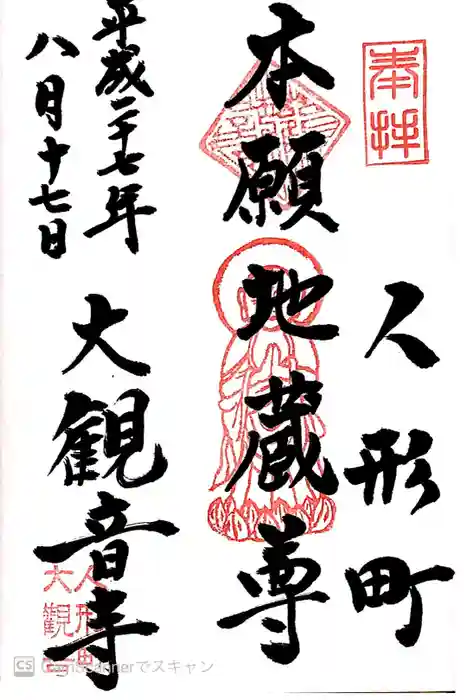 奉拝
人形町
本願地蔵尊
平成二十七年
八月十七日
大観音寺
人形町
大観
CS CamScannerでスキャン